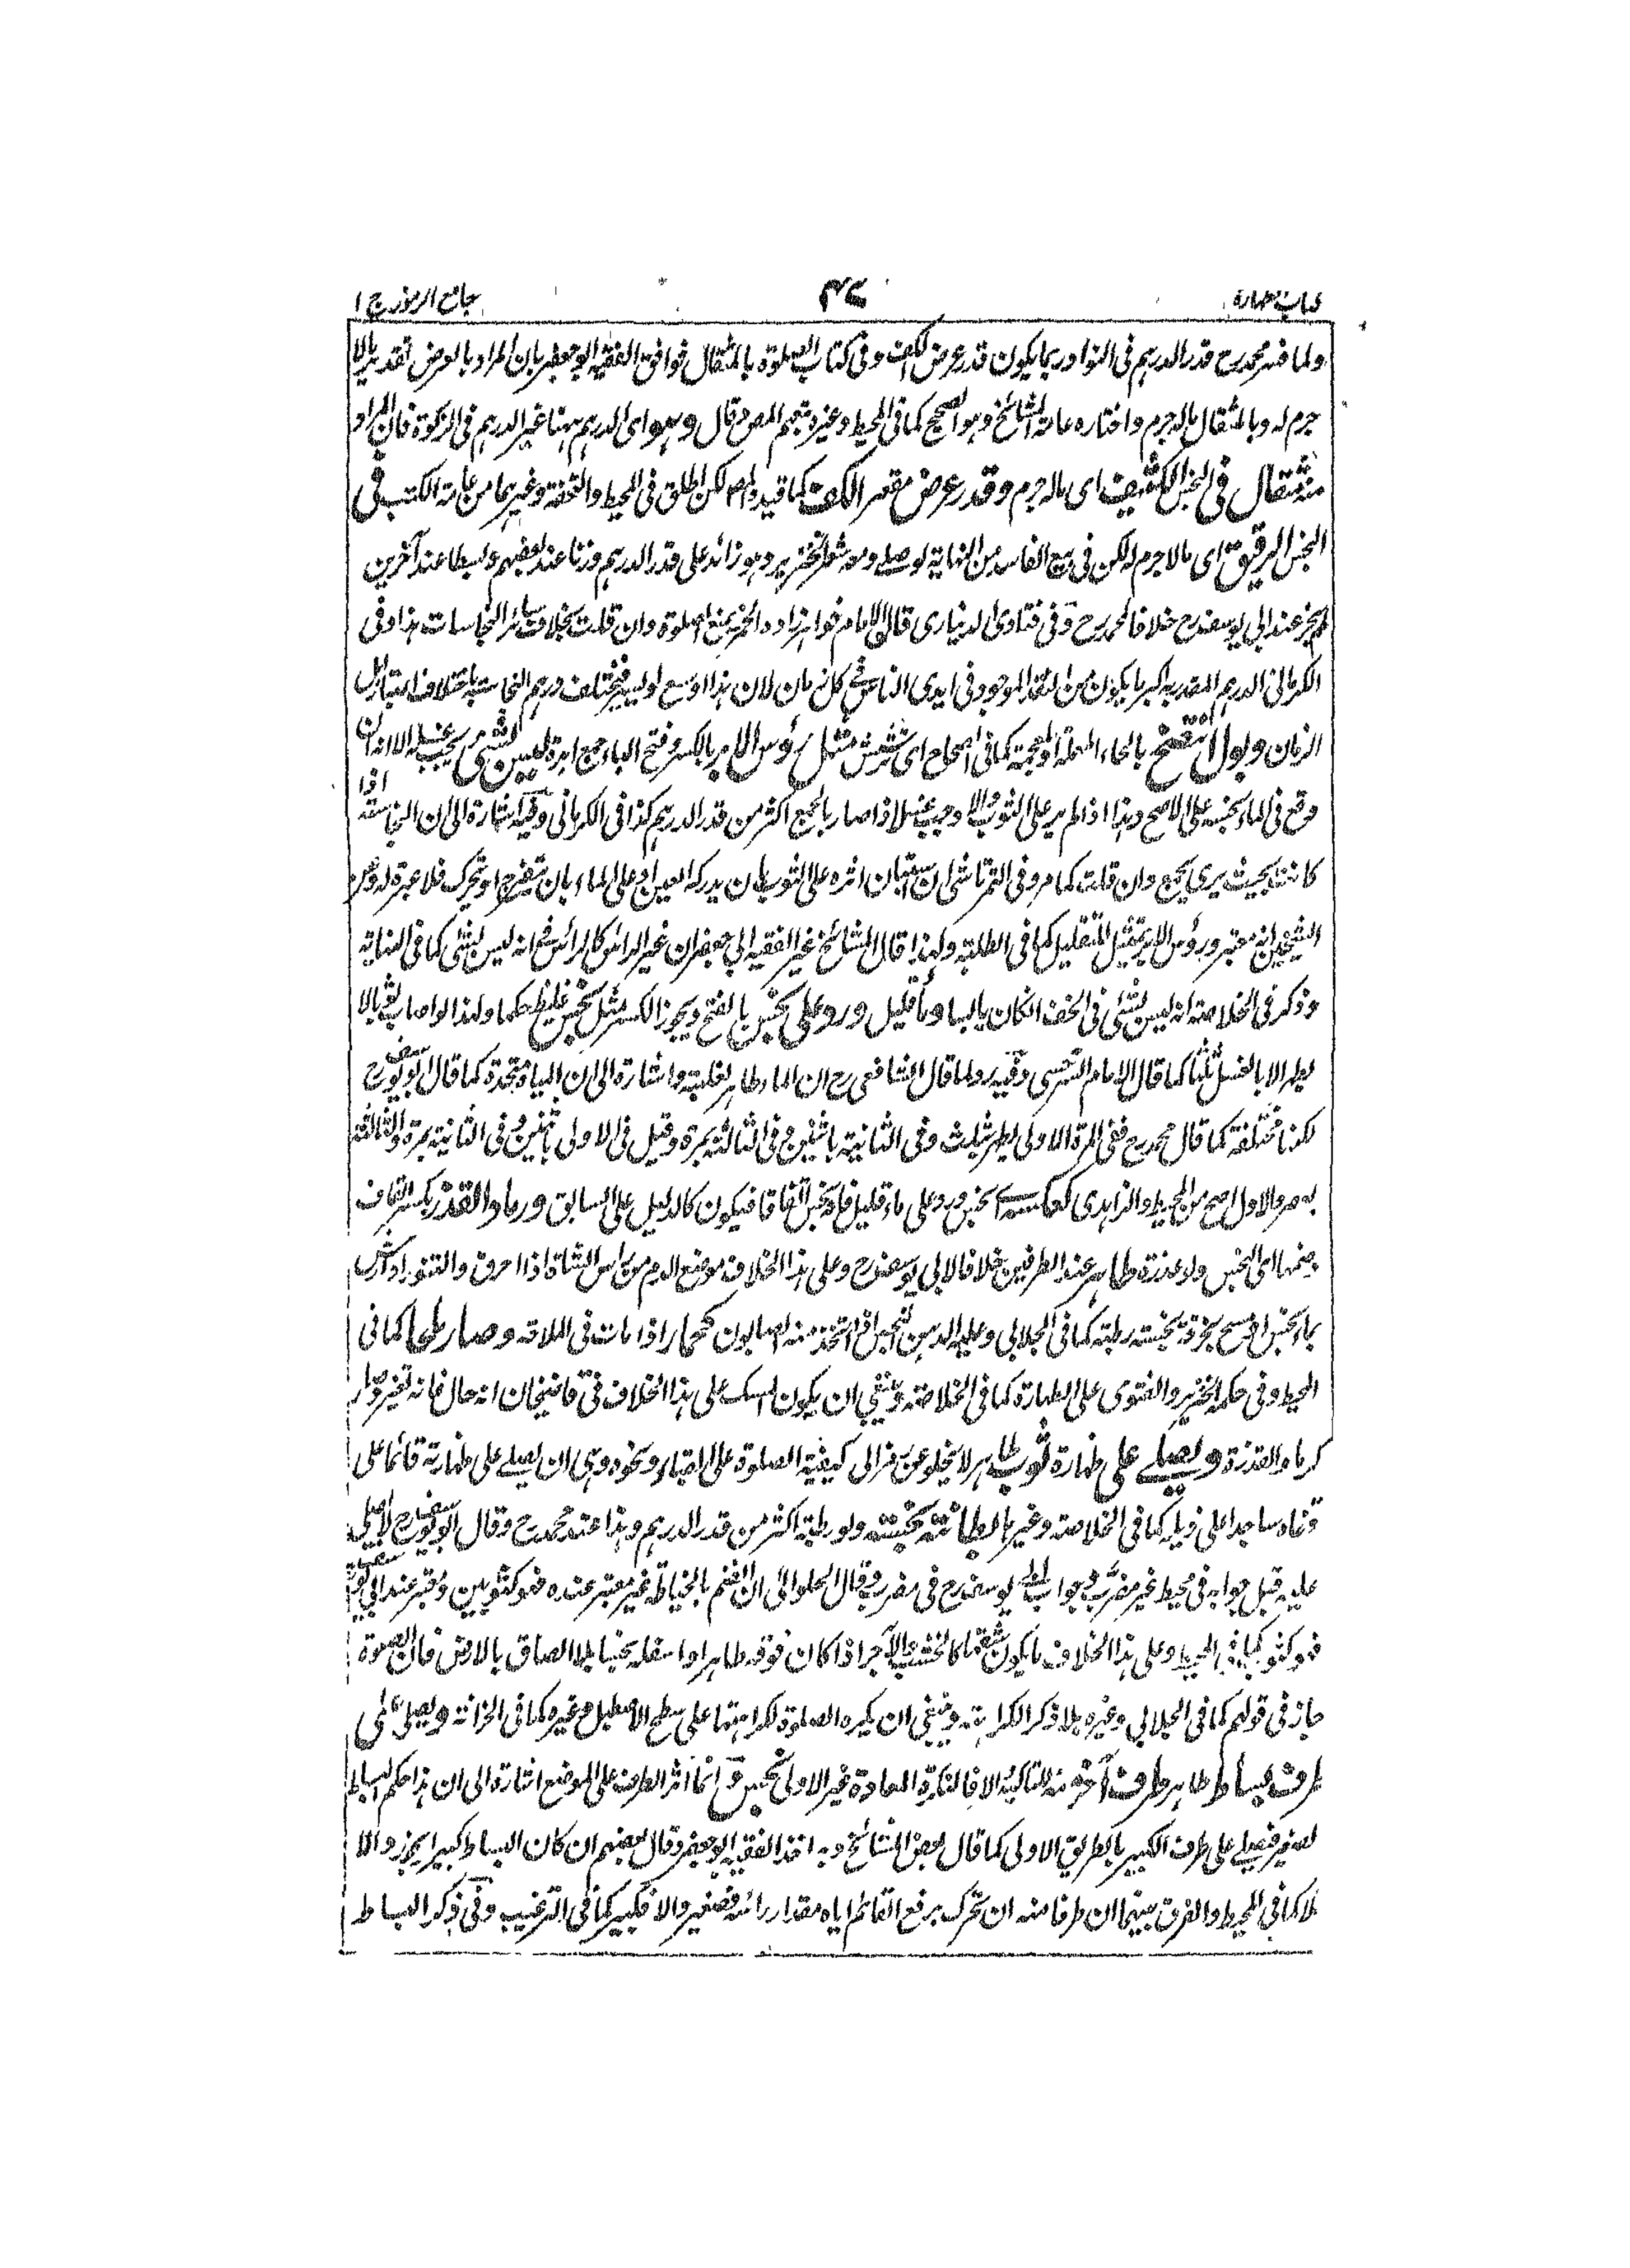 كتاب الطهارة
جامع الرموز ج ١
ولما فسر محمد رح قدر الدرهم فى النوادر بما يكون قدر عرض الكف وفى كتاب الصلوة بالمثقال فوافق الفقيه ابو جعفر بان المراد بالعرض تقدير ما لا
جرم له وبالمثقال ماله جرم واختاره عامة المشائخ وهو الصحيح كما فى المحيط وغيره ثم المص قال وهو اى الدرهم ههنا غير الدرهم فى الزكوة فان المراد
منه مثقال فى النجس الكثيف اى ماله جرم وقدر عرض مقعر الكف كما قيده المص لكن اطلق فى المحيط والتحفة وغيرهما من عامة الكتب فى
النجس الرقيق اى مالا جرم له لكن فى بيع الفاسد من النهاية لو صلى ومعه شعر الخنزير وهو زائد على قدر الدرهم وزنا عند بعضهم وبسطا عند آخرين
لم يجز عند ابى يوسف رح خلافا لمحمد رح وفى فتاوى الدينارى قال الامام خواهرزاده الخمر يمنع الصلوة وان قلت بخلاف سائر النجاسات هذا وفى
الكرمانى الدرهم المقدر به اكبر ما يكون من النقد الموجود فى ايدى الناس فى كل زمان لان هذا اوسع فيختلف درهم النجاسة باختلاف اعتبار اهل
الزمان وبول انتضح بالحاء المهملة او المعجمة كما فى الصحاح اى ترشش مثل رؤس الابر بالكسر وفتح الباء جمع ابرة ليس بشئ يجب غسله الا انه ان
وقع فى الماء نجسه على الاصح وهذا اذا لم ير على الثوب والا وجب غسله اذا صار بالجمع اكثر من قدر الدرهم كذا فى الكرمانى وفيه اشارة الى ان النجاسة اذا
كانت بحيث يرى يجمع وان قلت كما مر وفى التمرتاشى ان استبان اثره على الثوب بان يدركه العين او على الماء بان ينفرج او يتحرك فلا عبرة له وعن
الشيخين انه معتبر ورؤس الابر تمثيل للتقليل كما فى الطلبة ولهذا قال المشائخ غير الفقيه ابى جعفر ان غير الرأس كالرأس فى انه ليس بشئ كما فى النهاية
وذكر فى الخلاصة انه ليس بشئ فى الخف انكان يابسا وماء قليل ورد على نجس بالفتح ويجوز الكسر مثل نجس غليظ حكما ولهذا لو اصاب ثوبا لا
يطهر الا بالغسل ثلثا كما قال الامام السرخسى وفيه رد لما قال الشافعى رح ان الماء طاهر لغلبته واشارة الى ان المياه متحدة كما قال ابو يوسف رح
لكنا مختلفة كما قال محمد رح ففى المرة الاولى يطهر بثلث وفى الثانية باثنين وفى الثالثة بمرة وقيل فى الاولى باثنين وفى الثانية بمرة والثالثة
بعصر والاول اصح من المحيط والزاهدى كعكسه نجس ورد على ماء قليل فانه نجس اتفاقا فيكون كالدليل على السابق ورماد القذر بكسر القاف
بضمها اى النجس ولو عذرة طاهر عند الطرفين خلافا لابى يوسف رح وعلى هذا الخلاف موضع الدم من رأس الشاة اذا احرق والتنور اذا رش
بماء نجس او مسح بخرقة نجسة رطبة كما فى الجلابى وعليه الدهن النجس اذا اتخذ منه الصابون كحمار اذا مات فى الملاقه وصار ملحا كما فى
المحيط وفى حكمه الخنزير والفتوى على الطهارة كما فى الخلاصة وينبغى ان يكون المسك على هذا الخلاف ففى قاضيخان انه حلال فانه تغير وصار
كرماد القذرة ويصلى على طهارة ثوب طاهر لا يخلو عن رمز الى كيفية الصلوة على القباء ونحوه وهى ان يصلى على ظهارته قائما على
قفاه ساجدا على ذيله كما فى الخلاصة وغيرها بطانته نجسة ولو رطبة اكثر من قدر الدرهم وهذا عند محمد رح وقال ابو يوسف رح لا يصلى
عليه قيل جوابه فى مخيط غير مضرب وجواب ابى يوسف رح فى مضرب وقال الحلوائى ان الضم بالخياطة غير معتبر عنده فهو كثوبين ومعتبر عند ابى يوسف رح
فهو كثوب كما فى المحيط وعلى هذا الخلاف ما يكون شقتها كالخشب والآجر اذا كان فوقه طاهرا واسفله نجسا بلا الصاق بالارض فان الصلوة
جاز فى قولهم كما فى الجلابى وغيره بلا ذكر الكراهة وينبغى ان يكره الصلوة لكراهتها على سطح الاصطبل وغيره كما فى الخزانة ويصلى على
طرف بساط طاهر طرف آخر منه للتأكيد والا فالنكرة المعادة غير الاولى نجس وانما اثر الطرف على الموضع اشارة الى ان هذا حكم البساط
لصغير فيصلى على طرف الكبير بالطريق الاولى كما قال بعض المشائخ وبه اخذ الفقيه ابو جعفر وقال بعضهم ان كان البساط كبيرا يجوز والا
لا كما فى المحيط والفرق بينهما ان طرفا منه ان تحرك برفع القائم اياه مقدار رأسه فصغير والا فكبير كما فى الترغيب وفى ذكر البساط